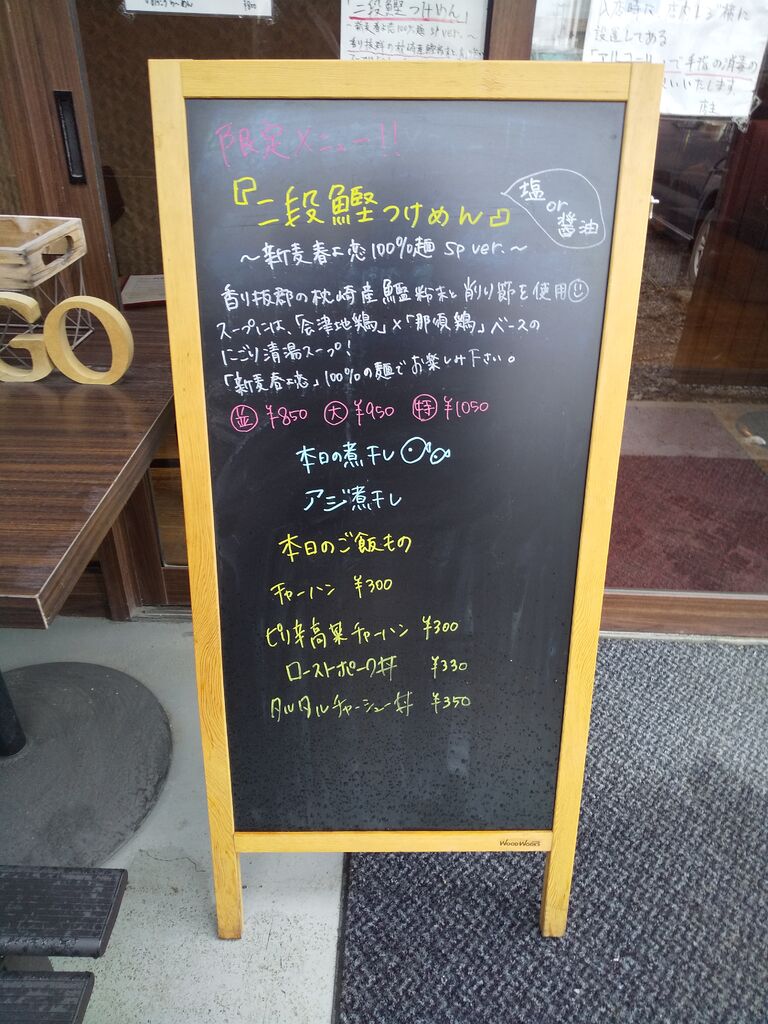 「二段鰹つけめん」
限定メニュー!!
『二段鰹つけめん』
塩
or
醤油
〜新麦春よ恋100%麺 sp ver.〜
香り抜群の枕崎産鰹粉末と削り節を使用
スープには、「会津地鶏」×「那須鶏」ベースの
にごり清湯スープ!
「新麦春よ恋」100%の麺でお楽しみ下さい。
並 ¥850 大 ¥950 特 ¥1050
本日の煮干し
アジ煮干し
本日のご飯もの
チャーハン ¥300
ピリ辛高菜チャーハン ¥300
ローストポーク丼 ¥330
タルタルチャーシュー丼 ¥350
WOOD WORKS
GO